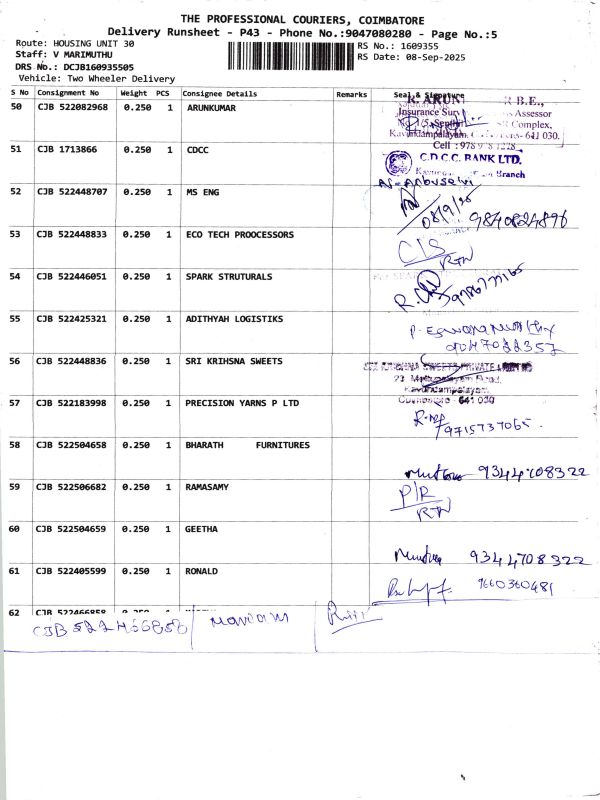 THE PROFESSIONAL COURIERS, COIMBATORE
Delivery Runsheet - P43 - Phone No.:9047080280 - Page No.:5
Route: HOUSING UNIT 30
RS No.: 1609355
Staff: V MARIMUTHU
RS Date: 08-Sep-2025
DRS No.: DCJB160935505
Vehicle: Two Wheeler Delivery
S No Consignment No Weight PCS Consignee Details Remarks Seal & Signature
50 CJB 522082968 0.250 1 ARUNKUMAR
K. ARUN R.B.E.,
Insurance Assessor
Complex,
Kavundampalayam, 641 030.
Cell :
51 CJB 1713866 0.250 1 CDCC
C.D.C.C. BANK LTD.
Branch
52 CJB 522448707 0.250 1 MS ENG
08/9/25 9840824896
53 CJB 522448833 0.250 1 ECO TECH PROOCESSORS
C/S
RTN
54 CJB 522446051 0.250 1 SPARK STRUTURALS
55 CJB 522425321 0.250 1 ADITHYAH LOGISTIKS
56 CJB 522448836 0.250 1 SRI KRIHSNA SWEETS
SRI KRISHNA SWEETS PRIVATE LIMITED
23, Mettupalayam Road,
Kavundampalayam,
Coimbatore - 641 030
57 CJB 522183998 0.250 1 PRECISION YARNS P LTD
9715737065
58 CJB 522504658 0.250 1 BHARATH FURNITURES
9344708322
59 CJB 522506682 0.250 1 RAMASAMY
P/R
RTN
60 CJB 522504659 0.250 1 GEETHA
9344708322
61 CJB 522405599 0.250 1 RONALD
9660360481
62 CJB 522466858 0.250
CJB 522466858 Mariam